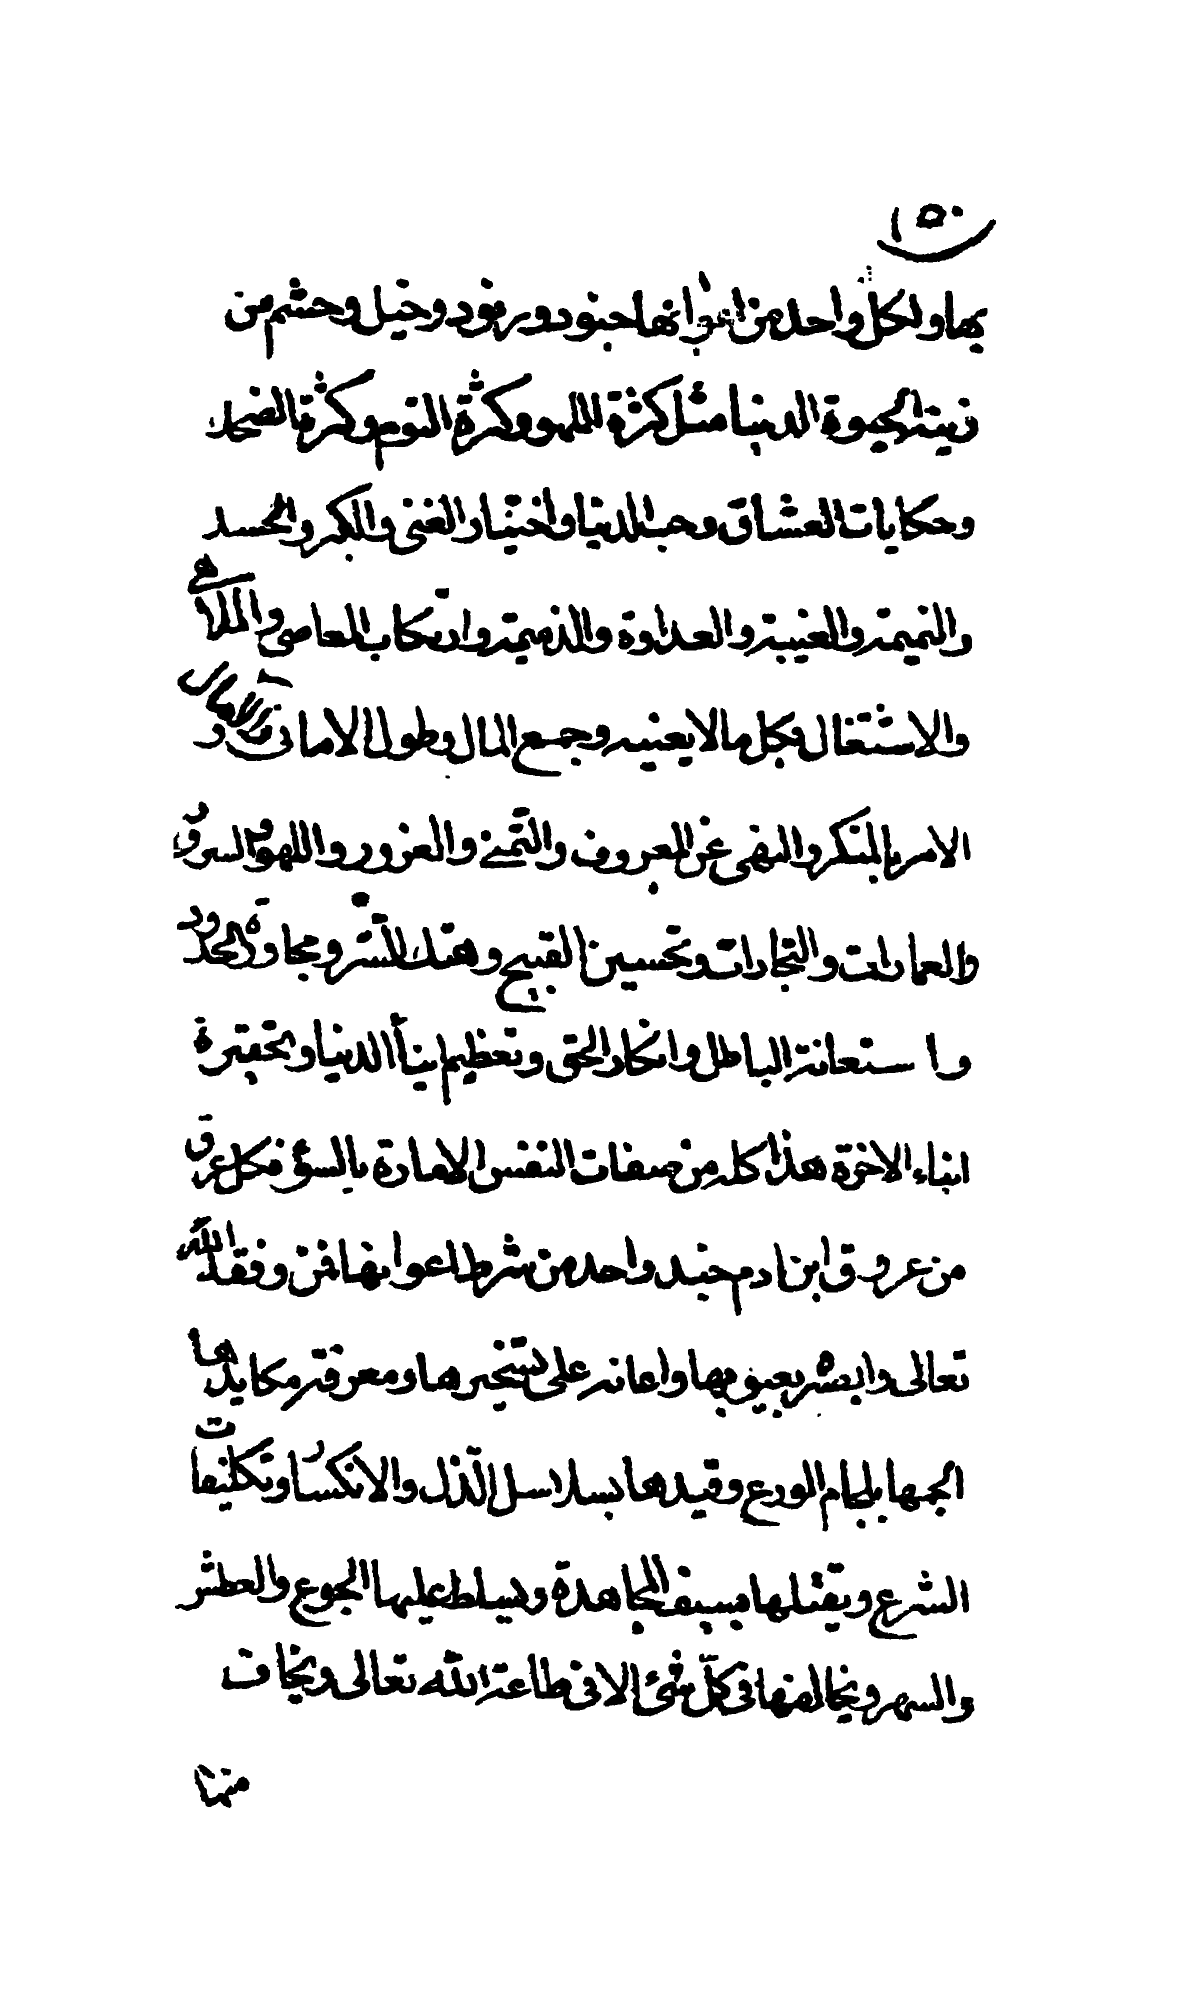 ١٥٠
بها ولكل واحد من اعوانها جنود وبنود وخيل وحشم من
زينة الحيوة الدنيا مثل كثرة اللهو وكثرة النوم وكثرة الضحك
وحكايات العشاق وحب الدنيا واختيار الغنى والكبر والحسد
والنميمة والغيبة والعداوة والذميمة وارتكاب المعاصى والملاهى
والاشتغال بكل ما لا يعنيه وجمع المال وطول الامانى والامال و
الامر بالمنكر والنهى عن المعروف والتمنى والغرور واللهو والسرور
والعمارات والتجارات وتحسين القبيح وهتك الستر ومجاوزة الحدود
وا ستعانة الباطل وانكار الحق وتعظيم ابناء الدنيا وتحقير
ابناء الاخرة هذا كله من صفات النفس الامارة بالسؤ فكل عرق
من عروق ابن ادم جند واحد من شر طاعوانها فمن وفقه الله
تعالى وابصره بعيوبها واعانه على تسخيرها ومعرفة مكايدها
الجمها بلجام الورع وقيدها بسلاسل الذل والانكسار وتكليفات
الشرع ويقتلها بسيف المجاهدة ويسلط عليها الجوع والعطش
والسهر ويخالفها فى كل شئ الا فى طاعة الله تعالى ويخاف
منها